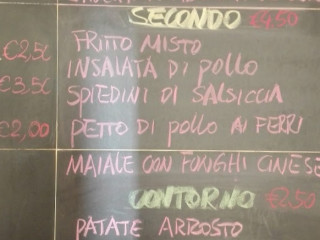 SECONDO €4,50
€2,50 FRITTO MISTO
INSALATA DI POLLO
€3,50
SPIEDINI DI SALSICCIA
€2,00 PETTO DI POLLO AI FERRI
MAIALE CON FUNGHI CINESE
CONTORNO €2.50
PATATE ARROSTO